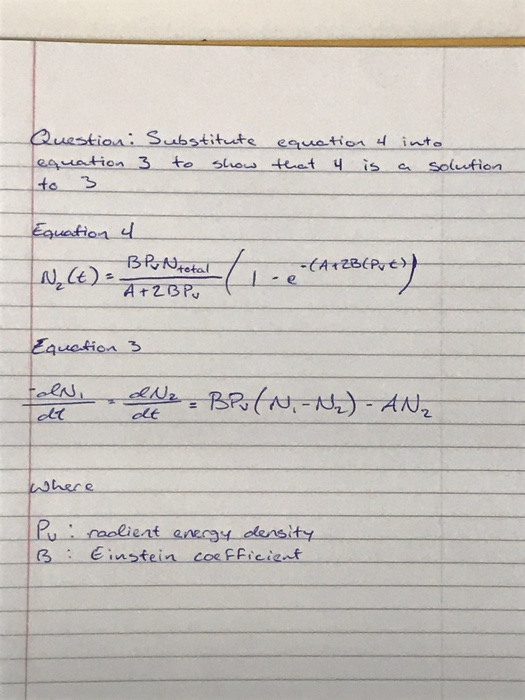 Question: Substitute equation 4 into
equation 3 to show that 4 is a solution
to 3
Equation 4
N₂(t) = BPᵥNtotal / A+2BPᵥ (1 - e^-(A+2B(Pᵥt))
Equation 3
-dN₁/dt = dN₂/dt = BPᵥ(N₁-N₂) - AN₂
Where
Pᵥ : radient energy density
B : Einstein coefficient